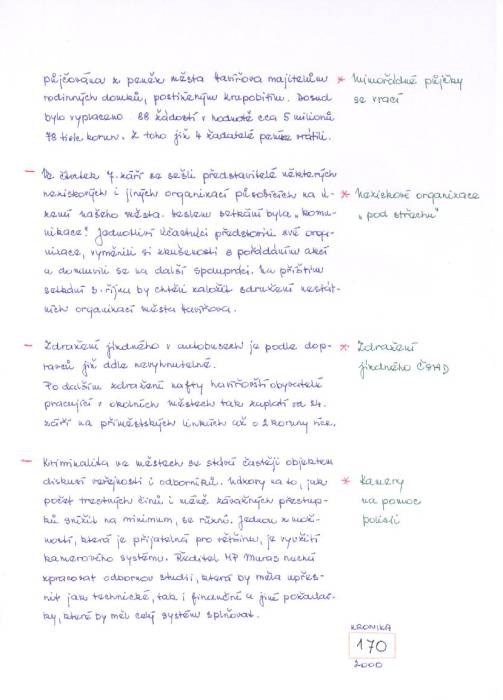 půjčována z peněz města Havířova majitelům
rodinných domků, postiženým krupobitím. Dosud
bylo vyplaceno 88 žádostí v hodnotě cca 5 milionů
78 tisíc korun. Z toho již 4 žadatelé peníze vrátili.
* Mimořádné půjčky
se vrací
– Ve čtvrtek 7. září se sešli představitelé některých
neziskových i jiných organizací působících na ú-
zemí našeho města. Heslem setkání byla „komu-
nikace." Jednotliví účastníci představili své orga-
nizace, vyměnili si zkušenosti s pořádáním akcí
a domluvili se na další spolupráci. Na příštím
setkání 5. října by chtěli založit sdružení nestát-
ních organizací města Havířova.
* Neziskové organizace
„pod střechu"
– Zdražení jízdného v autobusech je podle dop-
ravců již dále nevyhnutelné.
Po dalším zdražení nafty havířovští obyvatelé
pracující v okolních městech tak zaplatí od 24.
září na příměstských linkách až o 2 koruny více.
* Zdražení
jízdného ČSAD
– Kriminalita ve městech se stává častěji objektem
diskusí veřejnosti i odborníků. Názory na to, jak
počet trestných činů i méně závažných přestup-
ků snížit na minimum, se různí. Jednou z mož-
ností, která je přijatelná pro většinu, je využití
kamerového systému. Ředitel MP Muras nechá
zpracovat odbornou studii, která by měla upřes-
nit jak technické, tak i finanční a jiné požadav-
ky, které by měl celý systém splňovat.
* Kamery
na pomoc
policii
KRONIKA
170
2000